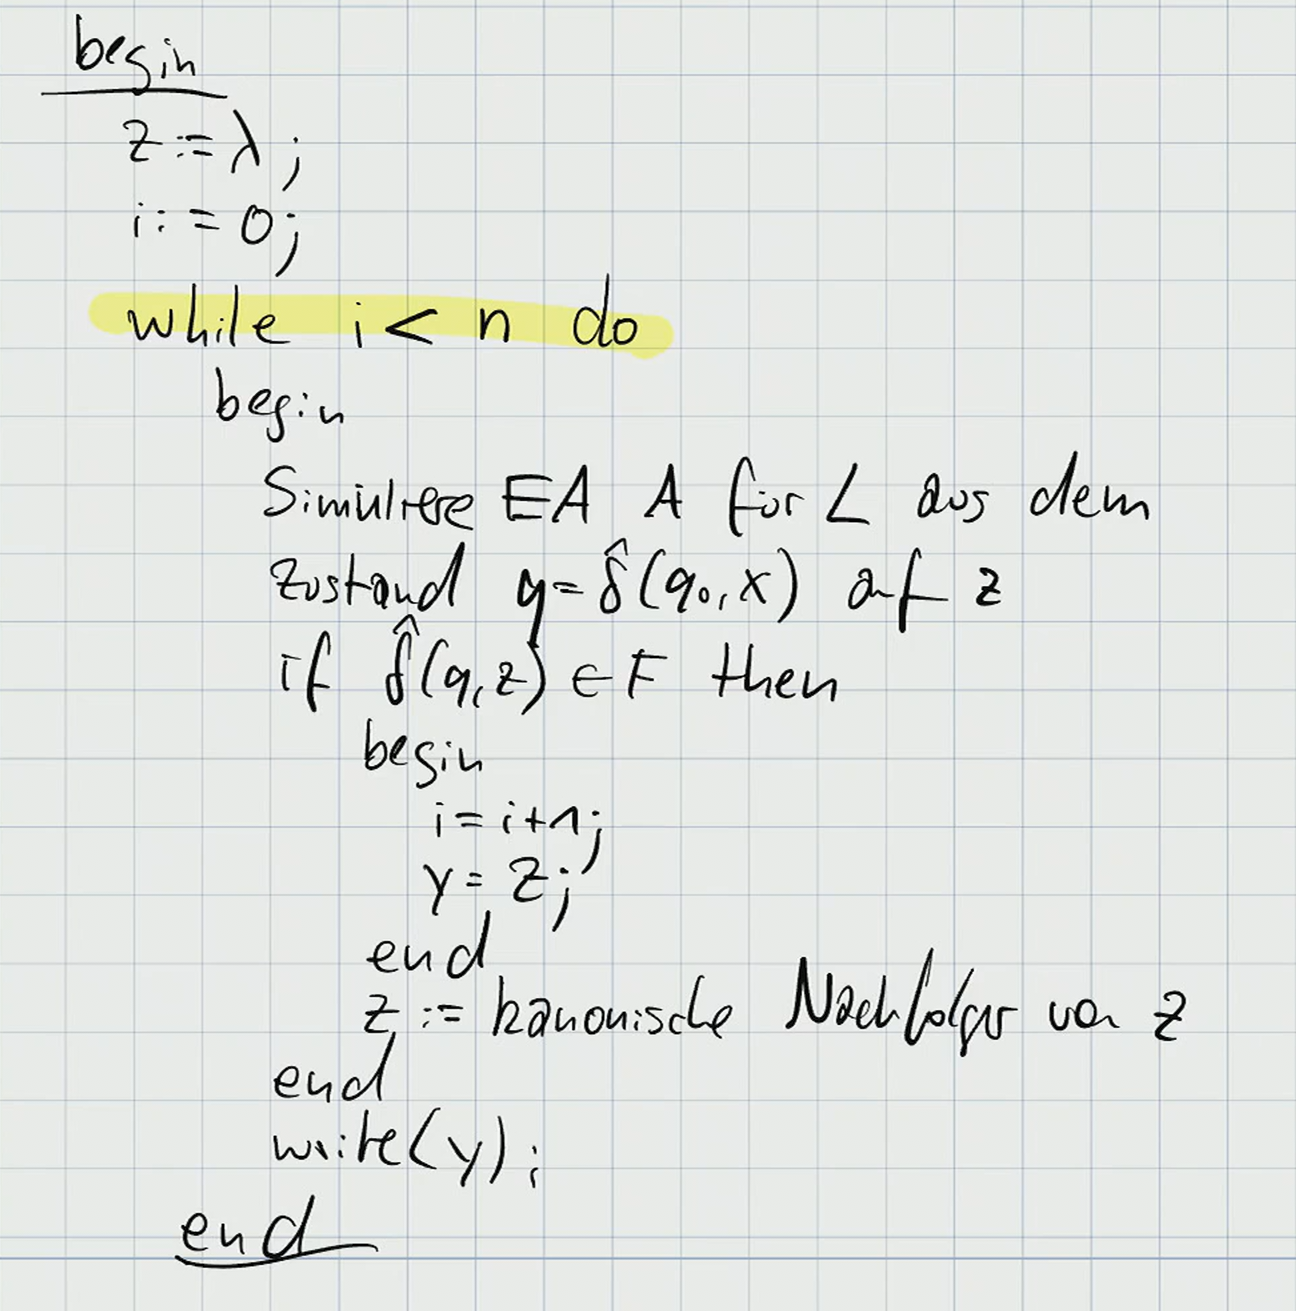 begin
z := λ;
i := 0;
while i < n do
begin
Simuliere EA A für L aus dem
Zustand q = δ̂(q₀, x) auf z
if δ̂(q, z) ∈ F then
begin
i = i+1;
y = z;
end
z := kanonische Nachfolger von z
end
write(y);
end